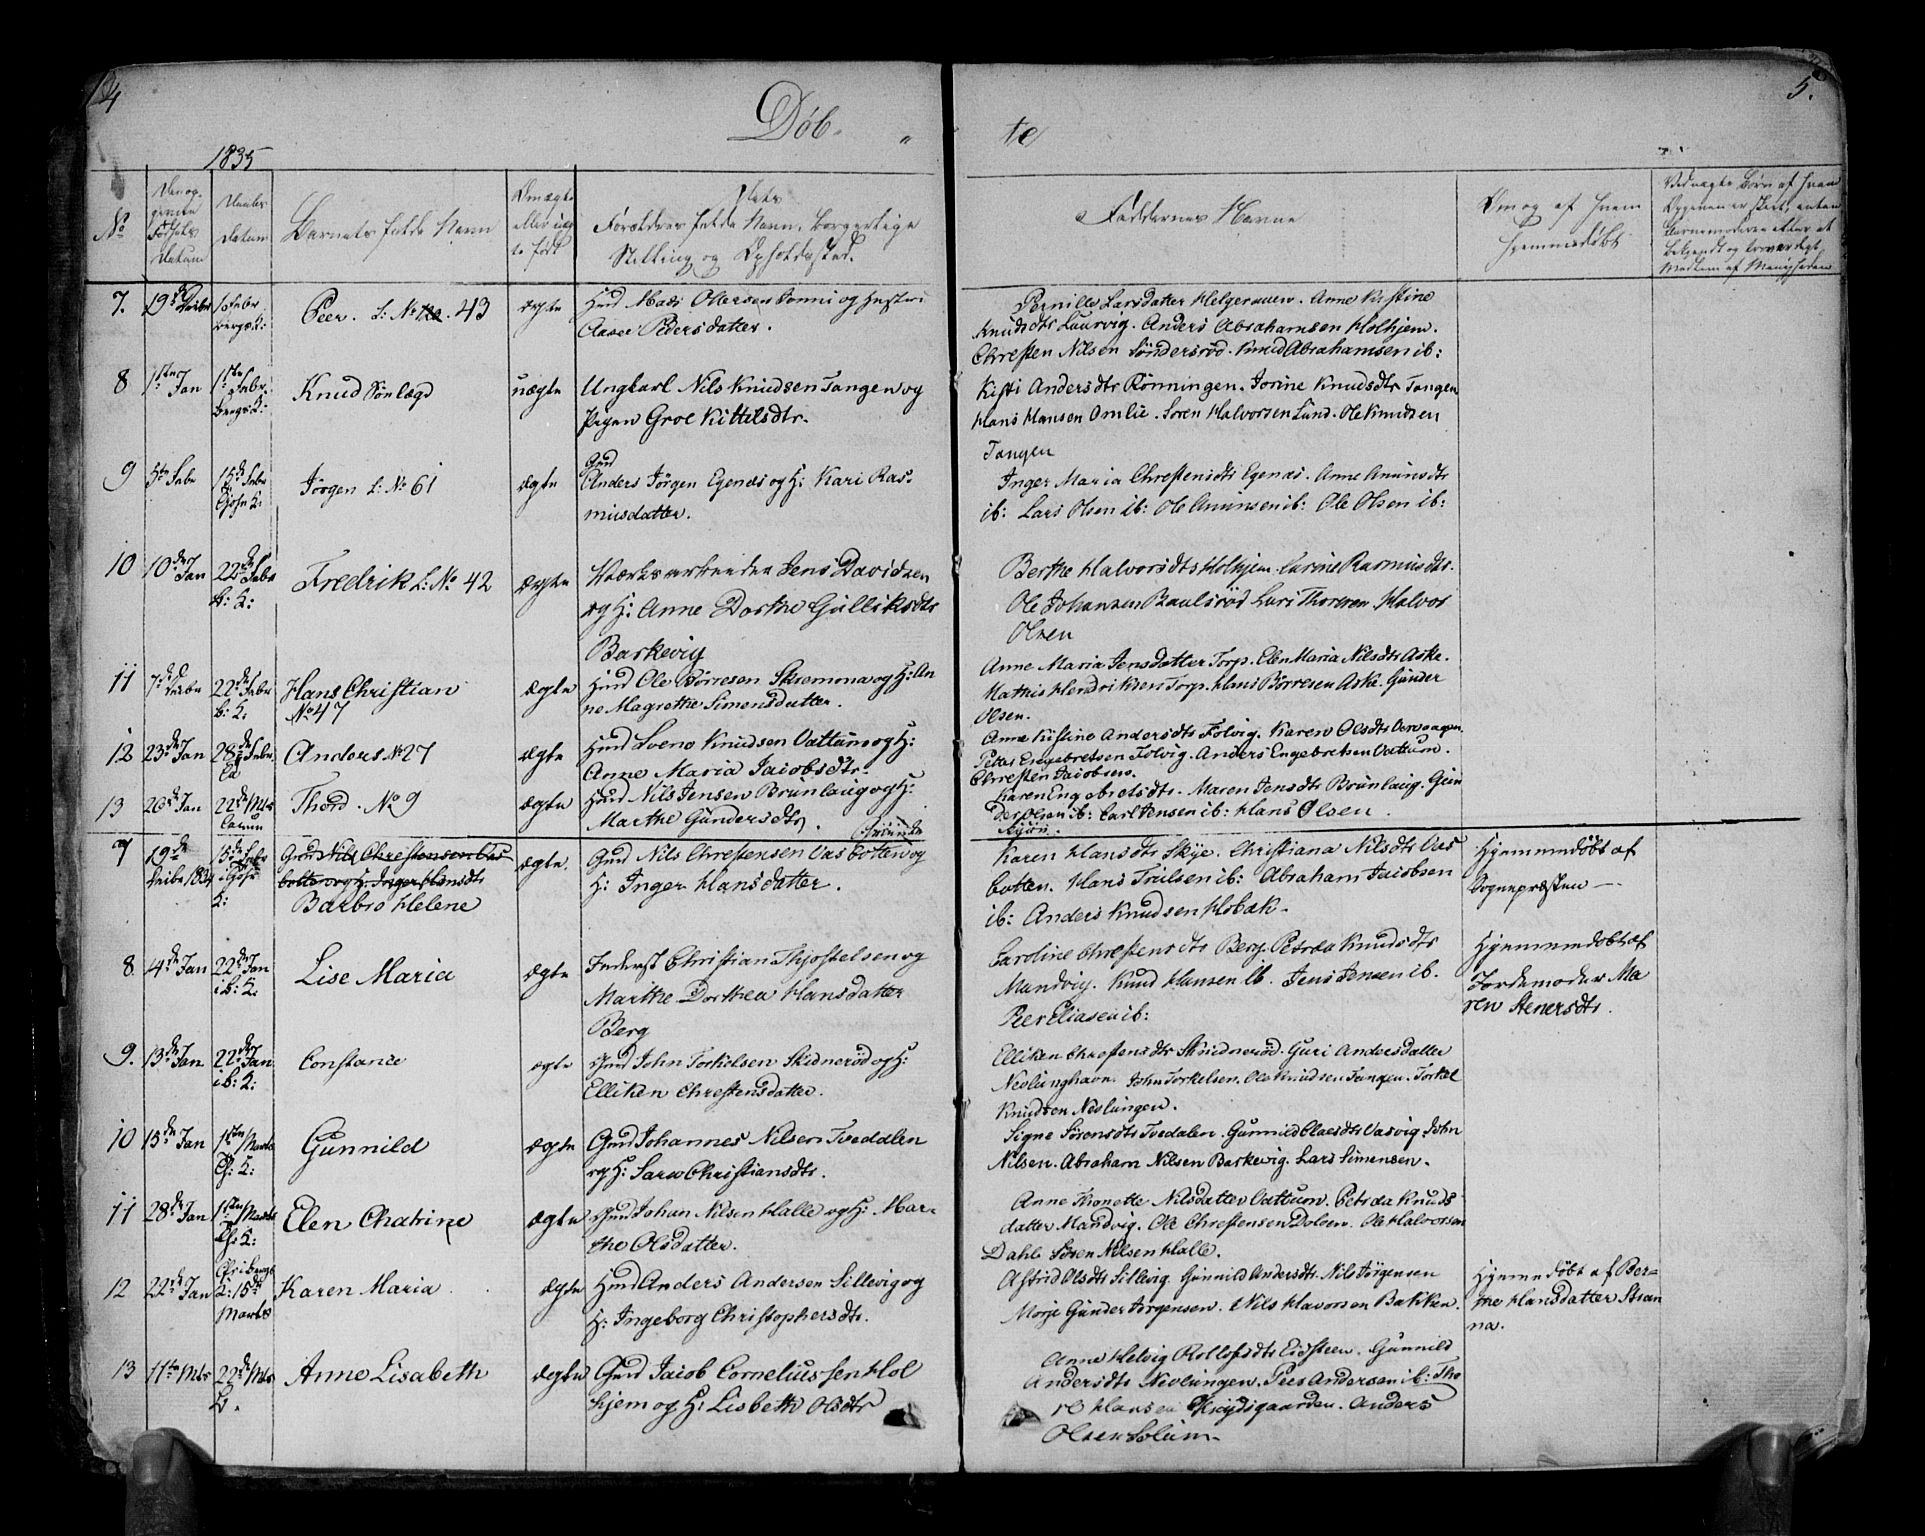 4
Døb-
te
5.
1835
No
Barnets fulde Navn
Forældres fulde Navn, borgerlige
Stilling og Opholdssted.
Faddernes Navne
Om og af hvem
hjemmedøbt
7.
Peer. L: No 43
ægte
Aase Pedersdatter.
Pernille Larsdatter Helgerauen. Anne Kirstine
Knudsdtr Laurvig. Anders Abrahamsen Holhjem.
Chresten Nilsen Søndersrød. Knud Abrahamsen ib:
8
1ste Jan
Knud Sønlægd
uægte
Ungkarl Nils Knudsen Tangen og
Pigen Groe Kittilsdtr.
Kisti Andersdtr Rønningen. Jorine Knudsdtr Tangen
Hans Hansen Omlie. Søren Halvorsen Lund. Ole Knudsen
Tangen
9
5te Febr
15de Febr
Jørgen L: No 61
ægte
Gmd
Anders Jørgen Egenæs og H: Kari Ras-
musdatter.
Inger Maria Chrestensdtr Egenæs. Anne Amunsdtr
ib: Lars Olsen ib: Ole Amunsen ib: Ole Olsen ib:
10
10de Jan
22de Febr
B: K:
Fredrik L: No 42
ægte
Jens Davidsen
og H: Anne Dorthe Gulliksdtr
Barkevig
Berthe Halvorsdtr Holhjem. Karine Rasmusdtr.
Ole Johansen Baulsrød Lars Thorsen Halvor
Olsen
11
22de Febr
B: K:
Hans Christian
No 47
ægte
Huud Ole Børresen Skremma og H: An
ne Magrethe Simensdatter.
Anne Maria Jensdatter Torp. Elen Maria Nilsdtr Aske.
Mathis Hendriksen Torp. Hans Børresen Aske. Gunder
Olsen.
12
23de Jan
28de Febr
Anders No 27
ægte
Knudsen Vattum og H:
Anne Maria Jacobsdtr.
Anne Kistine Andersdtr Folvig. Karen Olsdtr
Petter Engebretsen Folvig. Anders Engebretsen Vattum.
Chresten Jacobsen.
13
20de Jan
22de Mts
Thord. No 9
ægte
Nils Jensen Brunlaug og H:
Marthe Gundersdtr.
Karen Engebretsdtr. Maren Jensdtr Brunlaug. Gun
der Olsen ib: Carl Jensen ib: Hans Olsen.
7
19de
15de Febr
K:
Gmd Nils Chrestensen Vas
botten og H: Inger Hansdtr
Barbro Helene
ægte.
Gmd Nils Chrestensen Vasbotten og
H: Inger Hansdatter.
Karen Hansdtr Skije. Christiana Nilsdtr Vas
botten. Hans Trulsen ib: Abraham Jacobsen
ib: Anders Knudsen Hobæk.
Hjemmedøbt af
Sognepræsten —
8
4de Jan
22de Jan
ib: K:
Lise Maria
ægte
Inderst Christian Thjostelsen og
Marthe Dorthea Hansdatter
Berg
Caroline Chrestensdtr Berg. Petrea Knudsdtr
Mandvig. Knud Hansen ib. Jens Jensen ib.
Peer Eliasen ib:
Hjemmedøbt af
Jordemoder Ma
ren Stenersdtr.
9.
13de Jan
22de Jan
ib: K:
Constance
ægte
Gmd John Torkelsen Skidnerød og H:
Elliken Chrestensdatter.
Elliken Chrestensdtr Skridnerød. Guri Andersdatter
Neslunghavn. John Torkelsen. Ole Knudsen Tangen. Torkel
Knudsen Neslungen.
10
15de Jan
Gunnild
ægte
Gmd Johannes Nilsen Tvedalen
og H: Sara Christiansdtr.
Signe Sørensdtr Tvedalen. Gunnild Claesdtr Vasvig. John
Nilsen. Abraham Nilsen Barkevig. Lars Simensen.
11
28de Jan
Elen Chatrine
ægte
Gmd Johan Nilsen Halle og H: Mar-
the Olsdatter.
Anne Thonette Nilsdatter Vattum. Petrea Knuds
datter Mandvig. Ole Chrestensen Dolven. Ole Halvorsen
Dahle Søren Nilsen Halle.
12
22de Jan
K: 15de
Marts
Karen Maria.
ægte
Huud Anders Andersen Sillevig og
H: Ingeborg Christophersdtr.
Astrid Olsdtr Sillevig. Gunnild Andersdtr. Nils Jørgensen
Morje Gunder Jørgensen. Nils Havorsen Bakken.
Hjemmedøbt af Ber-
the Hansdatter Stran
na.
13
11te Mts
22de Mts
B.
Anne Lisabeth
ægte
Gmd Jacob Corneliussen Hol
hjem og H: Lisbeth Olsdtr
Anne Helvig Rollefsdtr Eidsteen. Gunnild
Andersdtr Nevlungen. Peer Andersen ib: Tho
re Hansen Krydsgaarden. Anders
Olsen Solum.